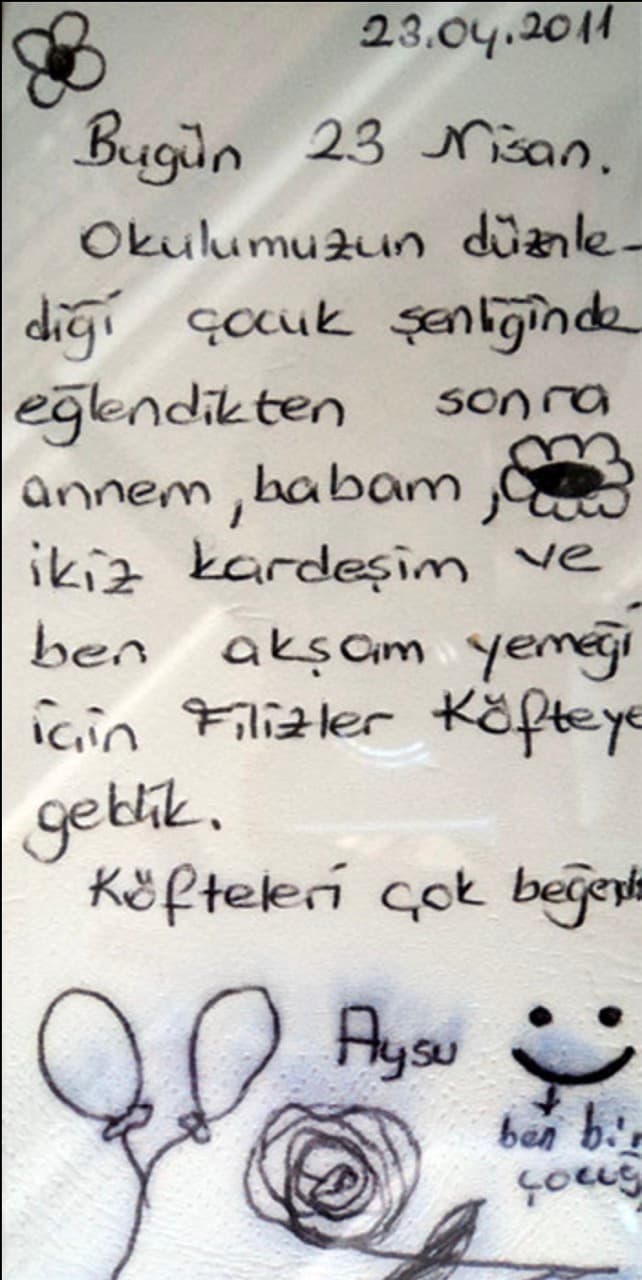 23.04.2011
Bugün 23 Nisan.
Okulumuzun düznle-
diği çocuk şenliğinde
eğlendikten sonra
annem, babam,
ikiz kardeşim ve
ben akşam yemeği
için Filizler Köfteye
geldik.
Köfteleri çok
Aysu
ben bir